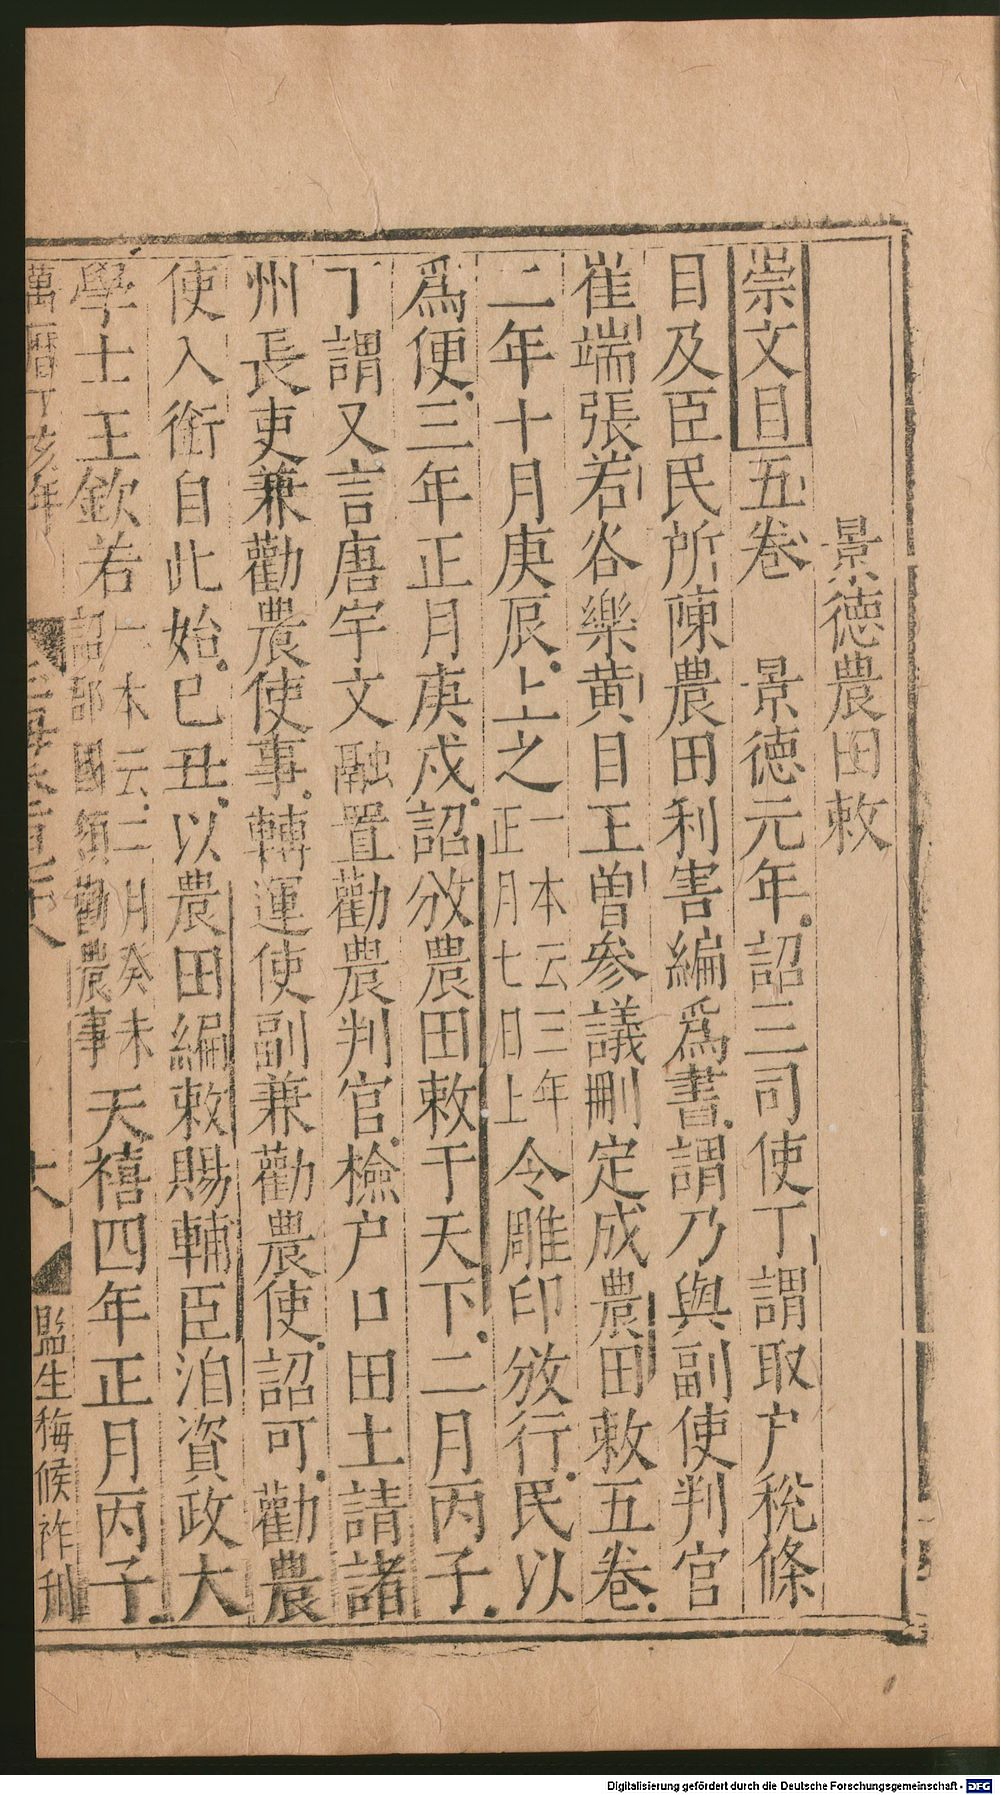 景德農田敕
崇文目五卷 景德元年詔三司使丁謂取户稅條
目及臣民所陳農田利害編爲書謂乃與副使判官
崔端張若谷樂黄目王曽參議刪定成農田敕五卷
二年十月庚辰上之一本云三年正月七日上令雕印攽行民以
爲便三年正月庚戍詔攽農田敕于天下二月丙子
丁謂又言唐宇文融置勸農判官檢户口田土請諸
州長吏兼勸農使事轉運使副兼勸農使詔可勸農
使入銜自此始已丑以農田編敕賜輔臣洎資政大
學士王欽若一本云二月癸未詔郡國領勸農事天禧四年正月丙子
萬曆丁亥年
監生梅候祚刊
Digitalisierung gefördert durch die Deutsche Forschungsgemeinschaft - DFG